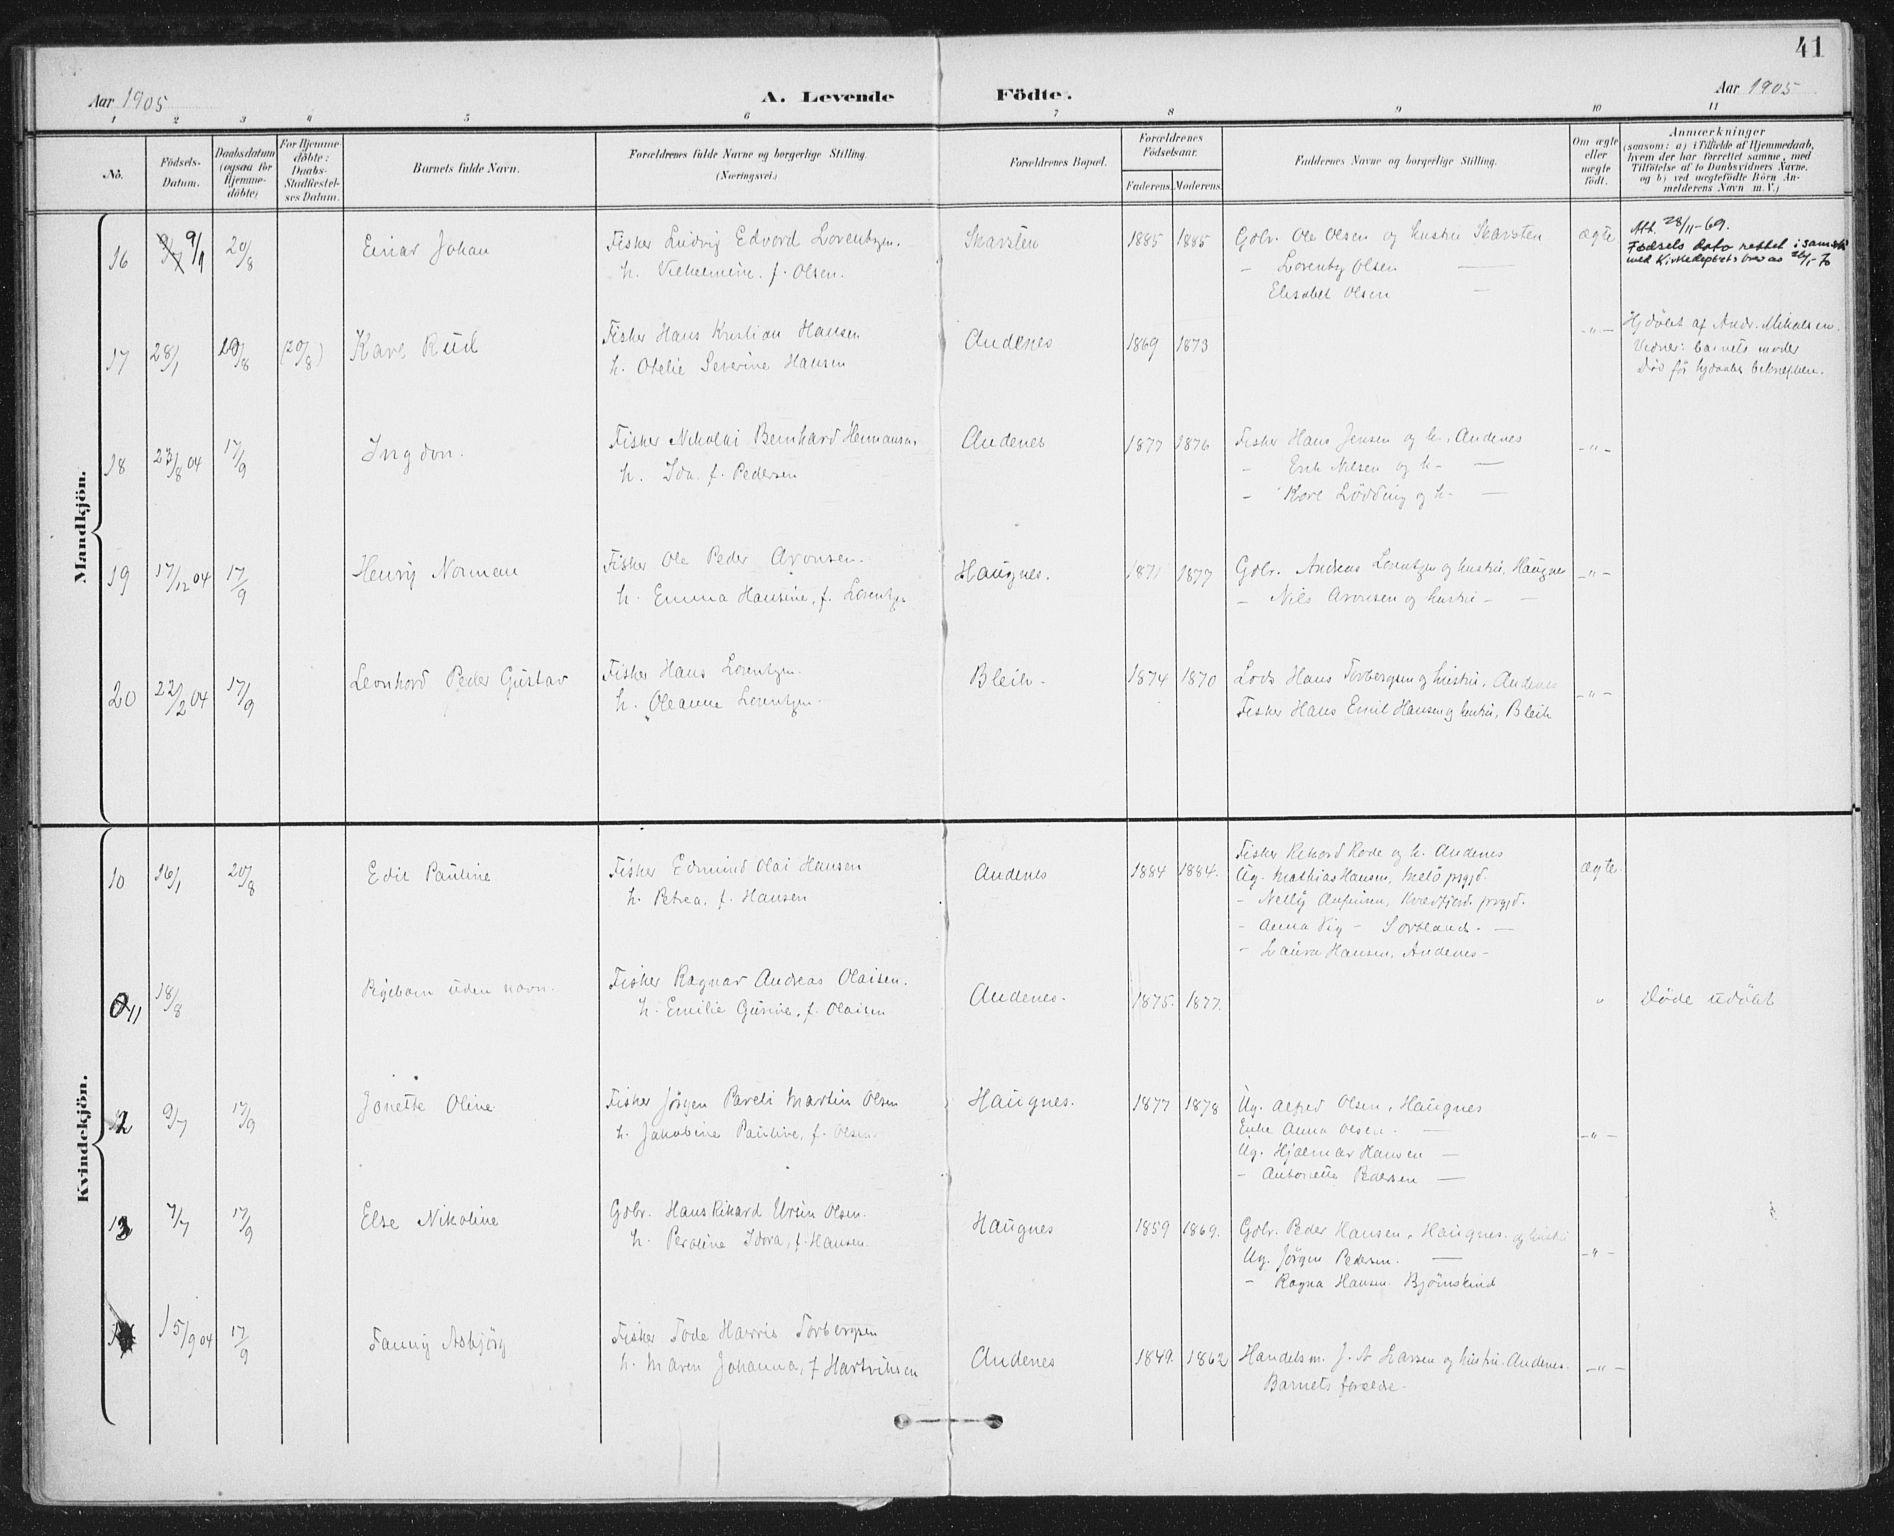 41
Aar 1905
A. Levende Födte.
Aar 1905
1 2 3 4 5 6 7 8 9 10 11
No.
Födsels-Datum.
Daabsdatum (ogsaa for Hjemmedöbte)
For Hjemmedöbte: Daabs-Stadfæstelses Datum.
Barnets fulde Navn.
Forældrenes fulde Navne og borgerlige Stilling.
(Næringsvei.)
Forældrenes Bopæl.
Forældrenes Födselsaar.
Faderens. Moderens.
Faddernes Navne og borgerlige Stilling.
Om ægte eller uægte födt.
Anmærkninger
(saasom: a) i Tilfælde af Hjemmedaab, hvem der har forrettet samme, med Tilföielse af to Daabsvidners Navne, og b) ved uægtefödte Börn Anmelderens Navn m. V.)
Mandkjön.
16 9/9 20/8 Einar Johan
Fisker Ludvig Edvard
h. Vilhelmine f. Olsen.
Skarsten 1885 1885
Gdbr. Ole Olsen og hustru Skarsten
- Olsen —
Elisabet Olsen —
ægte
Att. 28/11-69.
Fødsels dato rettet i samsv.
med
17 28/1 20/8 (20/8) Karl Rud
Fisker Hans Kristian Hansen
h. Otelie Severine Hansen
Andenes 1869 1873
-"-
Hjdöbt af Andr. Mikalsen.
Vidner: barnets moder
Död för hjdaabs bekræftelse.
18 23/8 04 17/9 Ingdon.
Fisker Nikolai Bernhard Hermansen
h. Ida. f. Pedersen
Andenes 1877 1876
Fisker Hans Jensen og h. Andenes
- Erik Nilsen og h- —
- Karl Lödding og h- —
-"-
19 17/12 04 17/9 Henry Norman
Fisker Ole Peder Aronsen.
h. Emma Hansine, f. Lorentzen
Haugnes. 1871 1877
Gdbr. Andreas Lorentzen og hustru, Haugnes
- Nils Aronsen og hustru - —
-"-
20 22/2 04 17/9 Leonhard Peder Gustav
Fisker Hans Lorentzen.
h. Oleanna Lorentzen.
Bleik. 1874 1870
Lods Hans Torbergsen og hustru, Andenes
Fisker Hans Emil Hansen og hustru, Bleik
-"-
Kvindekjön.
10 16/1 20/8 Edit Pauline
Fisker Edmund Olai Hansen
h. Petrea, f. Hansen
Andenes 1884 1884.
Fisker Rikard Rode og h. Andenes
Ug. Mathias Hansen, Melö prgjd.
- Nelly Kvædfjord. prgjd.
- Anna Vig - Sortland. —
- Laura Hansen, Andenes -
ægte.
11 18/8 Pigebarn uden navn.
Fisker Ragnar Andreas Olaisen.
h. Emilie Gurine, f. Olaisen
Andenes. 1875. 1877.
"
Döde udöbt
12 9/7 17/9 Jonette Oline
Fisker Jörgen Pareli Martin Olsen
h. Jakobine Pauline, f. Olsen.
Haugnes. 1877 1878
Ug. Alfred Olsen, Haugnes
Enke Anna Olsen. —
Ug. Hjalmar Hansen —
- Antonette Pedersen —
-"-
13 7/7 17/9 Else Nikoline
Gdbr. Hans Rikard Ursin Olsen.
h. Peroline Idora, f. Hansen.
Haugnes 1859 1869.
Gdbr. Peder Hansen, Haugnes. og hustru
Ug. Jörgen Pedersen. —
- Ragna Hansen. Bjørnskind
-"-
15/9 04 17/9 Fanny Asbjörg
Fisker Tode Harris Torbergsen
h. Maren Johanna, f Hartviksen
Andenes 1849. 1862
Handelsm. J. A Larsen og hustru. Andenes.
Barnets forældre.
-"-